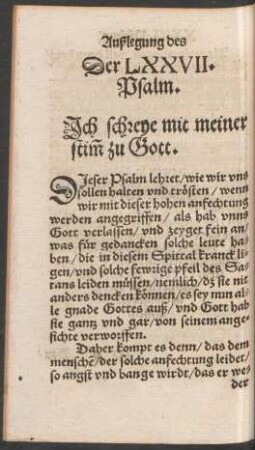 Außlegung des
Der LXXVII.
Psalm.
Ich schreye mit meiner
stim̃ zu Gott.
Dieser Psalm lehret/ wie wir vns
sollen halten vnd trösten/ wenn
wir mit dieser hohen anfechtung
werden angegriffen/ als hab vnns
Gott verlassen/ vnd zeyget fein an/
was für gedancken solche leute ha-
ben/ die in diesem Spittal kranck li-
gen/ vnd solche fewrige pfeil des Sa-
tans leiden müssen/ nemlich/ dz sie nit
anders dencken können/ es sey nun al-
le gnade Gottes auß/ vnd Gott hab
sie gantz vnd gar/ von seinem ange-
sichte verworffen.
Daher kompt es denn/ das dem
menschẽ/ der solche anfechtung leidet/
so angst vnd bange wirdt/ das er we-
der